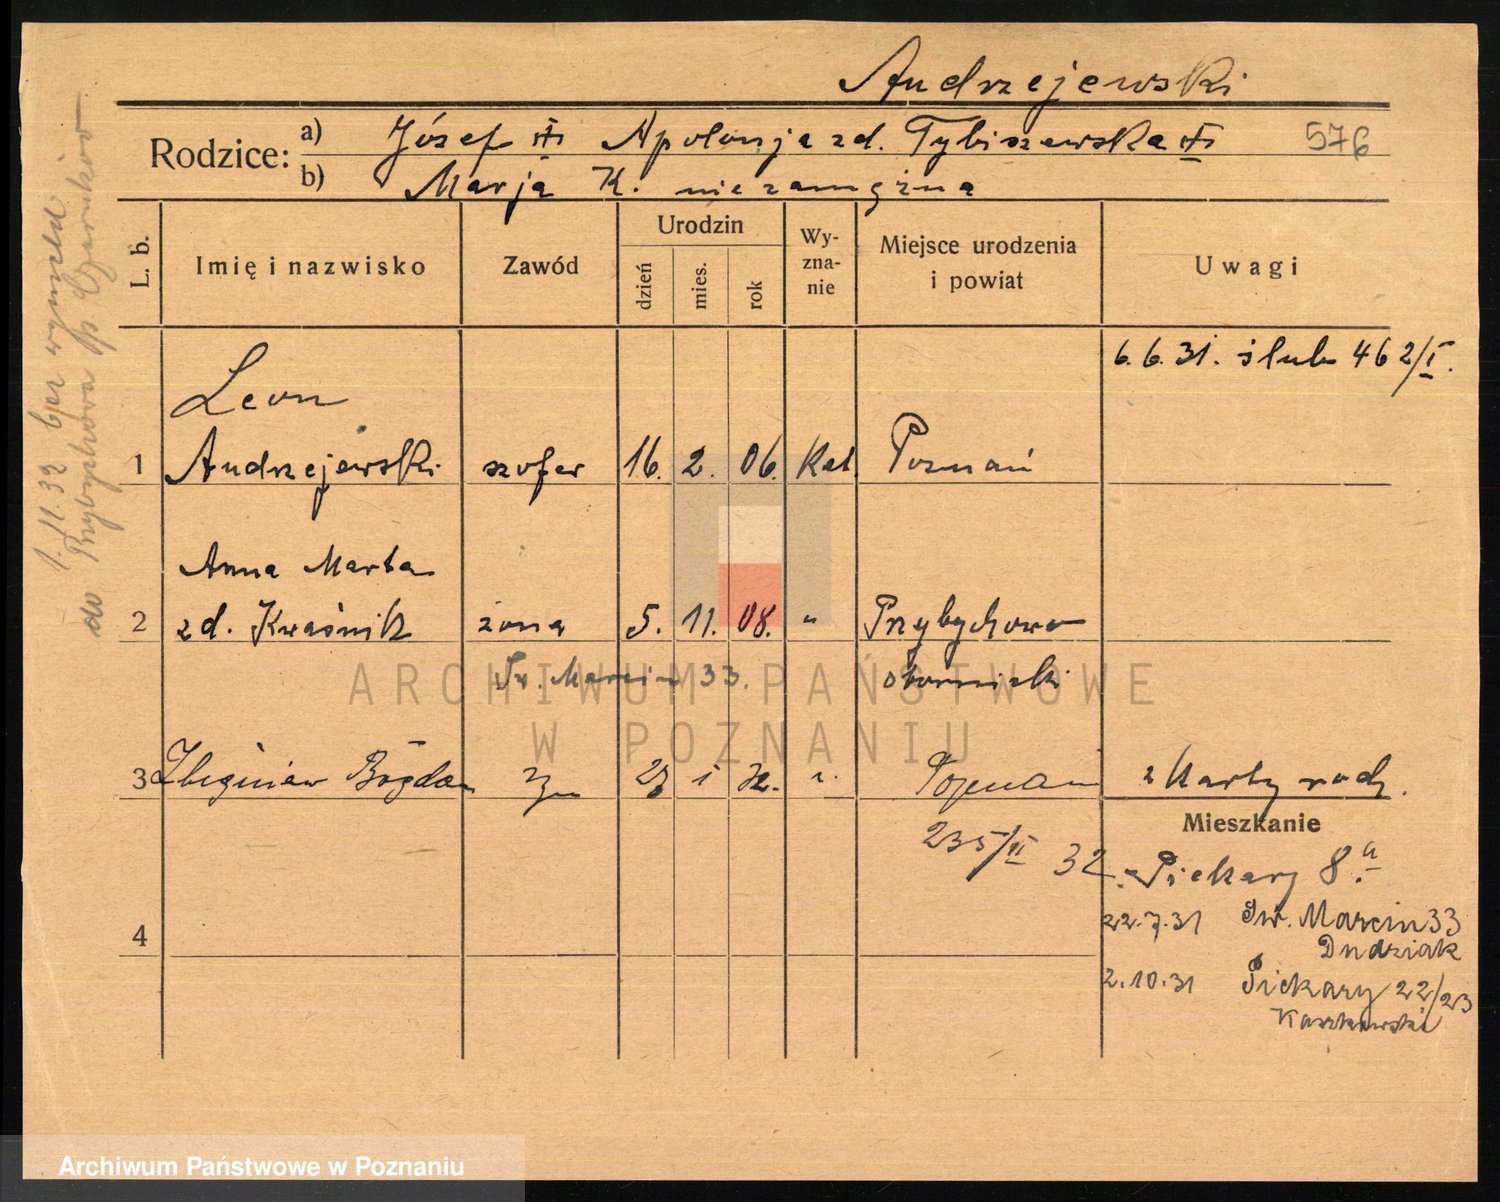 Andrzejewski
Rodzice: a) Józef Apolonja zd. Tybiszewska 576
b) Marja K. niezamężna
L. b. Imię i nazwisko Zawód Urodzin dzień mies. rok Wyznanie Miejsce urodzenia i powiat Uwagi
6.6.31. ślub 462/I.
Leon
1 Andrzejewski szofer 16. 2. 06. Kat. Poznań
Anna Marta
2 zd. Kwaśnik żona 5. 11. 08. " Przybychowo
Św. Marcin 33. obornicki
3 Zbigniew Bogdan syn i 32. Poznań z Karty rodz.
Mieszkanie
235/II 32. Piekary 8.a
22.7.31 Św. Marcin 33
4 Dudziak
2.10.31 Piekary 22/23
1.11.32 bez wymeld
do Przybychowa p. Czarnków
ARCHIWUM PAŃSTWOWE
W POZNANIU
Archiwum Państwowe w Poznaniu